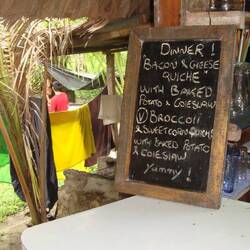 DINNER !
BACON & CHEESE
QUICHE
WITH BAKED
POTATO & COLESLAW
Ⓥ BROCCOLI
& SWEETCORN QUICHE
WITH BAKED POTATO
& COLESLAW
YUMMY !